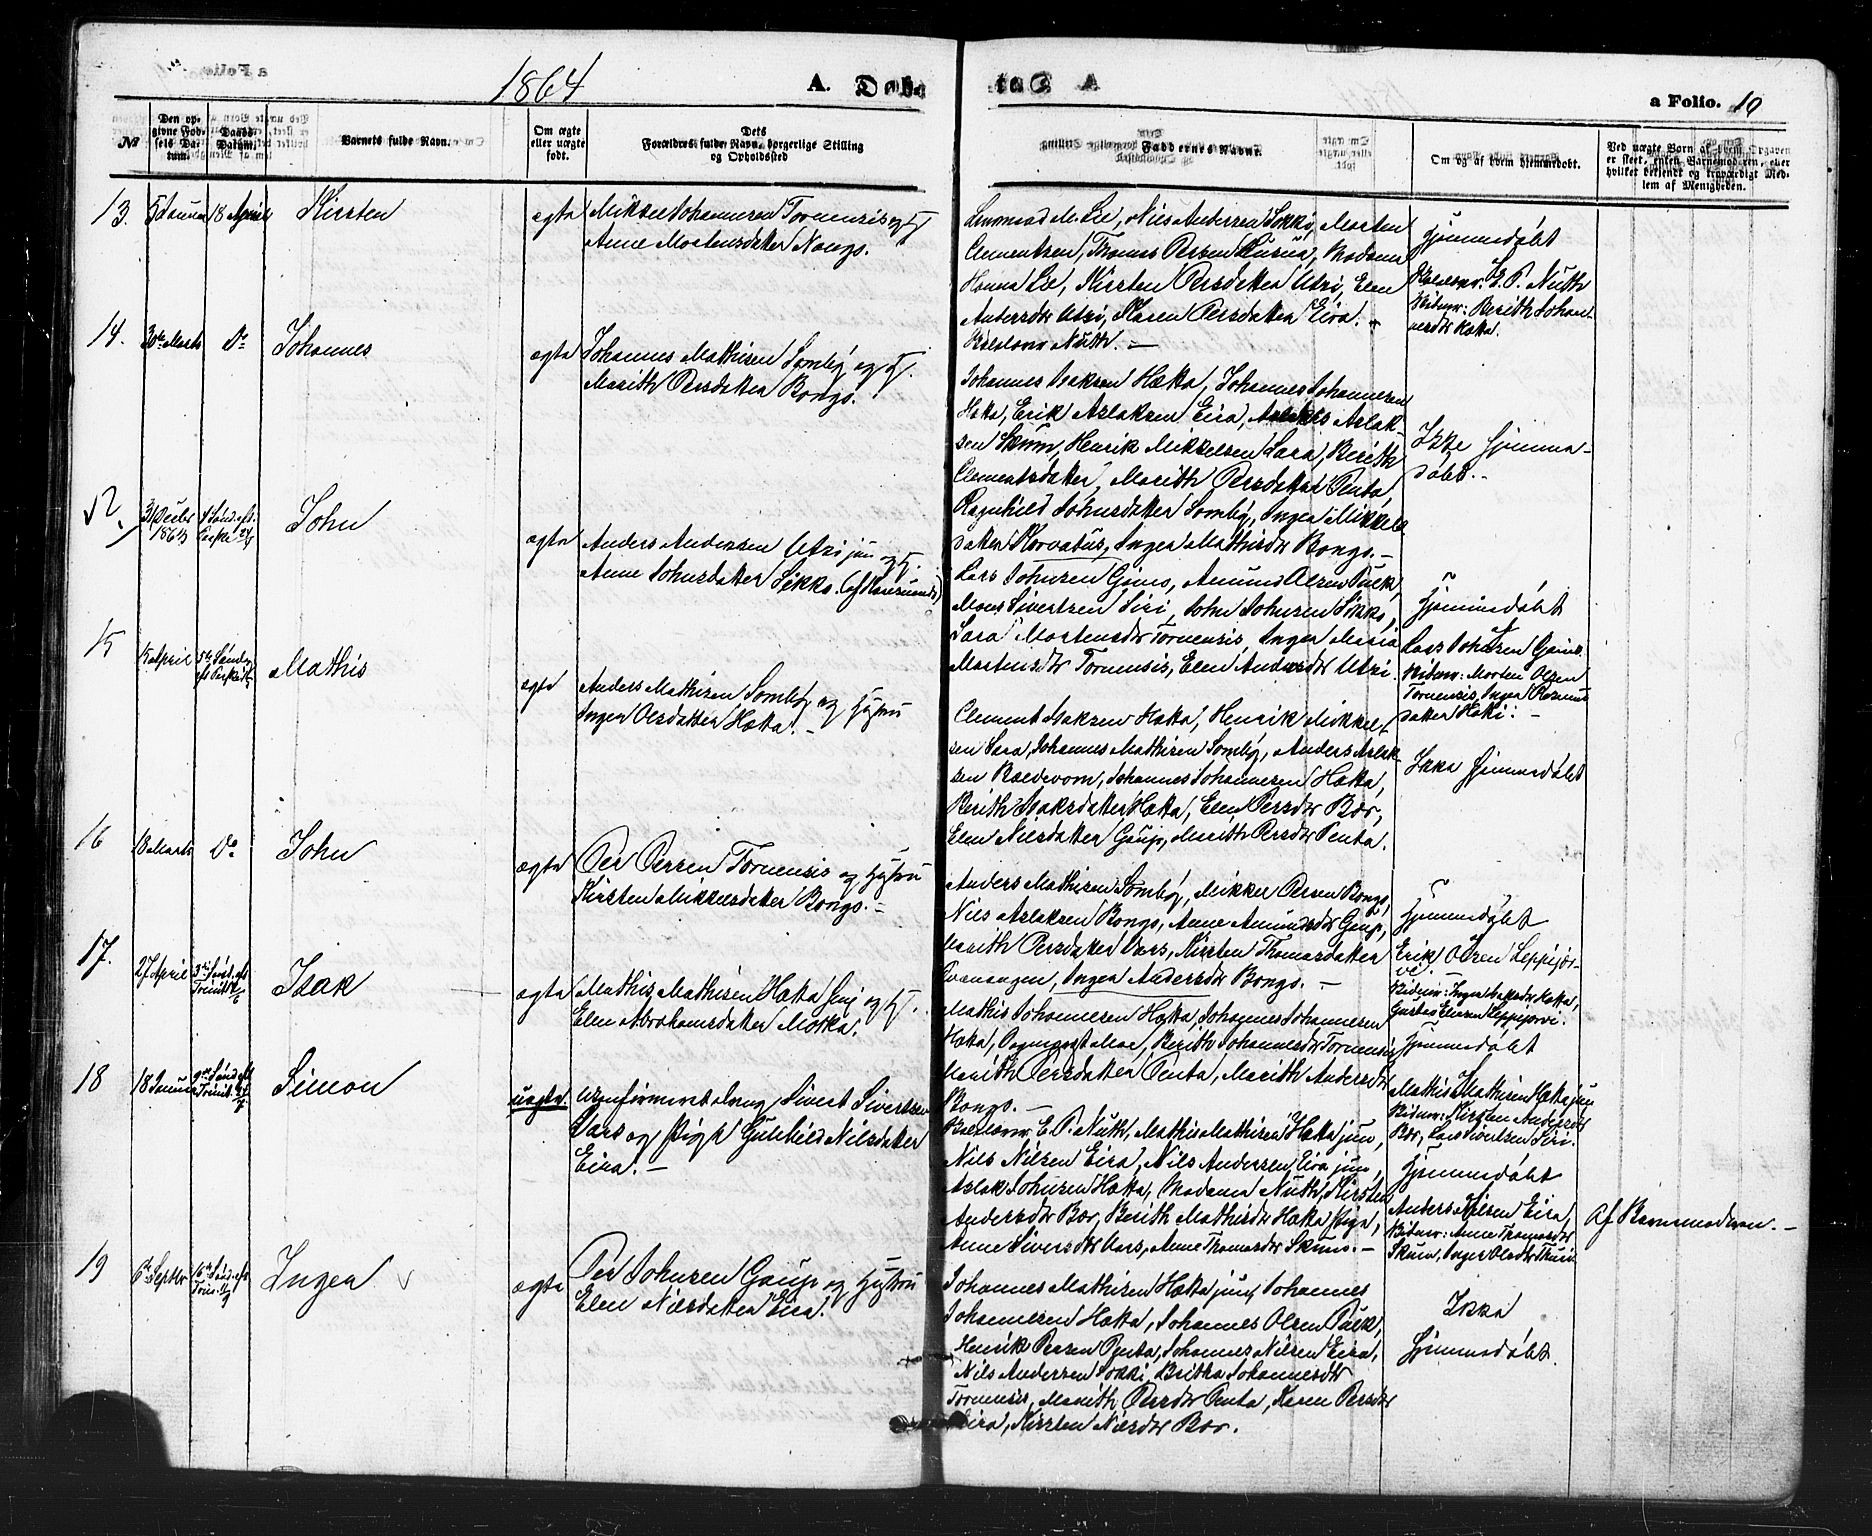 1864
A. Døbte
a Folio. 10
№
Den opgivne Fødselsdatum.
Daabsdatum.
Barnets fulde Navn.
Om ægte eller uægte født.
Dets Forældres fulde Navn, borgerlige Stilling og Opholdssted
Faddernes Navne.
Om og af hvem hjemmedøbt.
Ved uægte Børn af hvem Opgaven er skeet, enten Barnemoderen, eller hvilket bekjendt og troværdigt Medlem af Menigheden.
13. 5 Januar 18 April Kirsten
ægte Mikkel Johannesen Tornensis og H.
Anne Mortensdatter Nango.
Lensmand M. Lie, Nils Andersen Sokki, Morten
Clementsen, Thomas Persen Kurua, Madame
Hanna Lie, Kirsten Persdatter Utsi, Elen
Andersdtr Utsi, Karen Persdatter Eira.
Kirkelovr Nuth. —
Hjemmedøbt
E. P. Nuth
Vidner: Berith Johan-
nesdtr Hætta.
14. 30te Marts Do Johannes
ægte Johannes Mathisen Somby og H.
Marith Persdatter Bongo.
Johannes Isaksen Hætta, Johannes Johannesen
Hætta, Erik Aslaksen Eira, Aslak Aslak-
sen Skum, Henrik Mikkelsen Sara, Berith
Clementsdatter, Marith Persdatter Penta,
Ragnhild Johnsdatter Somby, Inger Mikkels
datter Korvatus, Inger Mathisdtr Bongo. —
Ikke Hjemme-
døbt. -
31 Decbr 1863 John
ægte Anders Andersen Utsi jun og H.
Anne Johnsdatter Sikko. (af Karesuando)
Lars Johnsen Gaino, Amund Olsen Pulk,
Mons Sivertsen Siri, John Johnsen Sikko,
Sara Mortensdtr Tornensis, Inger Maria
Mortensdtr Tornensis, Elen Andersdtr Utsi.
Hjemmedøbt
af
Lars Johnsen Gaino.
Vidner: Morten Olsen
Tornensis, Inger Rasmus
datter Koki. —
15 15 April Mathis
ægte Anders Mathisen Somby og Hustru
Inger Olsdatter Hætta. —
Clement Isaksen Hætta, Henrik Mikkel-
sen Sara, Johannes Mathisen Somby, Anders Aslak-
sen Baldevom, Johannes Johannesen Hætta,
Berith Isaksdatter Hætta, Elen Persdtr Bær,
Elen Nilsdatter Gaup, Marith Persdtr Penta.
Ikke Hjemmedøbt
16 18 Marts Do John
ægte Per Persen Tornensis og Hustru
Kirsten Mikkelsdatter Bongo. —
Anders Mathisen Somby, Mikkel Persen Bongo,
Nils Aslaksen Bongo, Anne Amundsdtr Gaup,
Marith Persdatter Vars, Kirsten Thomasdatter
Kvænangen, Inger Andersdtr Bongo. —
Hjemmedøbt
Erik Olsen Leppijær-
vi.
Vidner: Inger Hætta,
Gustav Eliasen Leppijærvi.
17. 27 April Isak
ægte Mathis Mathisen Hætta jun og H.
Elen Abrahamsdatter Motka.
Mathis Johannesen Hætta, Johannes Johannesen
Hætta, Pogmæst Moe, Berith Johannesdtr Tornensis
Marith Persdatter Penta, Marith Andersdtr
Bongo. —
Hjemmedøbt
Mathis Mathisen Hætta jun
Vidner: Kirsten Andersdtr
Bær, Lars Sivertsen Siri.
18 18 Januar Simon
uægte. Ukonfirmeret dreng Sivert Sivertsen
Vars og Pige Gulehild Nilsdatter
Eira. —
Kirkelovr E. P. Nuth, Mathis Mathisen Hætta jun,
Nils Nilsen Eira, Nils Andersen Eira jun,
Aslak Johnsen Hætta, Madame Nuth, Kirsten
Andersdtr Bær, Berith Mathisdtr Hætta Pige,
Anne Siversdtr Vars, Anne Thomasdtr Skum. —
Hjemmedøbt
Anders Nilsen Eira,
Vidner: Anne Thomasdtr
Skum, Inger Olsdtr Thuri
Af Barnemoderen. —
19 6te Septbr Inger
ægte Per Johnsen Gaup og Hustru
Elen Nilsdatter Eira.
Johannes Mathisen Hætta jun, Johannes
Johannesen Hætta, Johannes Olsen Pulk,
Henrik Persen Penta, Johannes Nilsen Eira,
Nils Andersen Sokki, Britha Johannesdtr
Tornensis, Marith Persdtr Penta, Karen Persdtr
Eira, Kirsten Nilsdtr Bær.
Ikke
Hjemmedøbt.